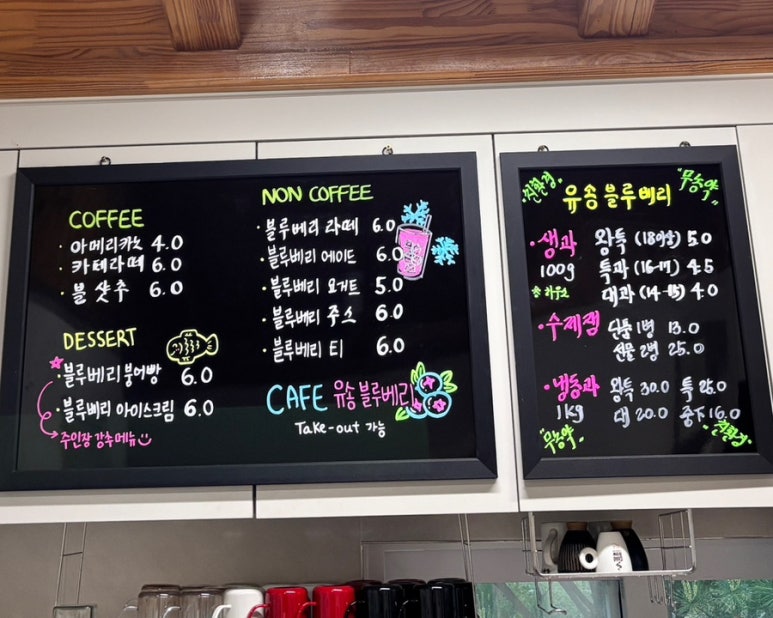 COFFEE
· 아메리카노 4.0
· 카테라떼 6.0
· 블 샷추 6.0
DESSERT
· 블루베리 붕어빵 6.0
· 블루베리 아이스크림 6.0
주인장 강추 메뉴
NON COFFEE
· 블루베리 라떼 6.0
· 블루베리 에이드 6.0
· 블루베리 요거트 5.0
· 블루베리 주스 6.0
· 블루베리 티 6.0
CAFE 유송 블루베리
Take-out 가능
친환경
무농약
유송 블루베리
· 생과 왕특 (18이상) 5.0
100g 특과 (16-17) 4.5
대과 (14-15) 4.0
· 수제잼 단품 1병 13.0
선물 2병 25.0
· 냉동과 왕특 30.0 특 25.0
1kg 대 20.0 중下 16.0
무농약
친환경